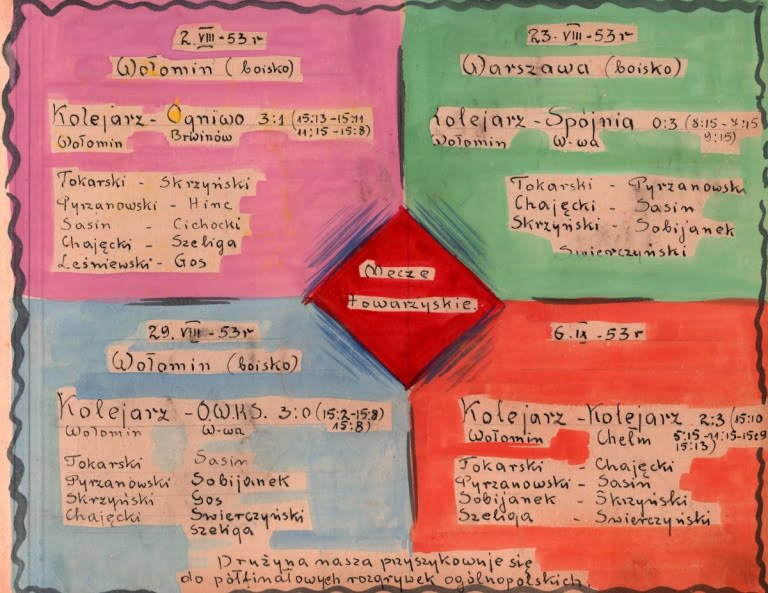 2.VIII-53r
Wołomin (boisko)
Kolejarz - Ogniwo 3:1 (15:13-15:11
Wołomin Brwinów 11:15-15:8)
Tokarski Skrzyński
Pyrzanowski - Hinc
Sasin - Cichocki
Chajęcki - Szeliga
Leśniewski - Gos
23.VIII-53r
Warszawa (boisko)
Kolejarz - Spójnia 0:3 (8:15-7:15
Wołomin W-wa 9:15)
Tokarski - Pyrzanowski
Chajęcki - Sasin
Skrzyński Sobijanek
Świerczyński
Mecze
towarzyskie.
29.VIII-53r
Wołomin (boisko)
Kolejarz - O.W.K.S. 3:0 (15:2-15:8)
Wołomin W-wa 15:8)
Tokarski Sasin
Pyrzanowski Sobijanek
Skrzyński Gos
Chajęcki Świerczyński
Szeliga
6.IX-53r
Kolejarz - Kolejarz 2:3 (15:10
Wołomin Chełm 5:15-11:15-15:9
15:13)
Tokarski - Chajęcki
Pyrzanowski - Sasin
Sobijanek - Skrzyński
Szeliga - Świerczyński
Drużyna nasza przyszykownuje się
do półfinałowych rozgrywek ogólnopolskich.